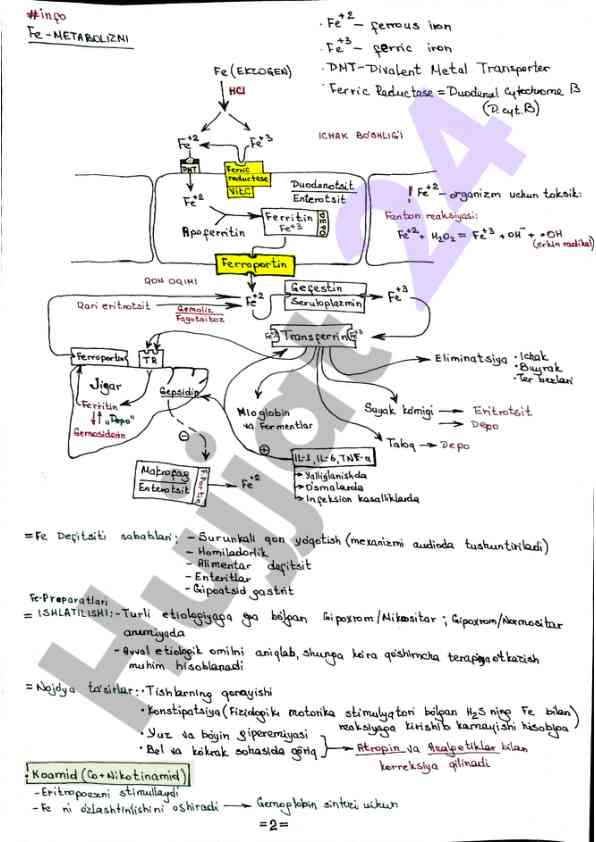 #info
Fe-METABOLIZMI
• Fe+2 – ferrous iron
• Fe+3 – ferric iron
• DMT-Divalent Metal Transporter
• Ferric Reductase = Duodenal Cytochrome B
(D.cyt.B)
Fe (EKZOGEN)
HCl
Fe+2
Fe+3
ICHAK BO'SHLIG'I
DMT
Ferric
reductase
Vit C
Fe+2
Duodenotsit
Enterotsit
! Fe+2 – organizm uchun toksik:
Apoferritin
Ferritin
Fe+3
DEPO
Fenton reaksiyasi:
Fe+2 + H2O2 = Fe+3 + OH- + •OH
(erkin radikal)
Ferroportin
QON OQIMI
Qari eritrotsit
Gemoliz
Fagotsitoz
Fe+2
Gefestin
Seruloplazmin
Fe+3
Fe+3
Transferrin
Fe+3
Ferroportin
TR
Eliminatsiya
• Ichak
• Buyrak
• Ter bezlari
Jigar
Ferritin
"Depo"
Gemosiderin
Gepsidin
Mioglobin
va Fermentlar
Suyak ko'migi → Eritrotsit
→ Depo
Taloq → Depo
Makrofag
Enterotsit
Fe+2
IL-1, IL-6, TNF-α
→ Yallig'lanishda
→ O'smalarda
→ Infeksion kasalliklarda
= Fe Defitsiti sabablari: – Surunkali qon yo'qotish (mexanizmi audioda tushuntiriladi)
– Homiladorlik
– Alimentar defitsit
– Enteritlar
– Gipoatsid gastrit
Fe-Preparatlari
= ISHLATILISHI: – Turli etiologiyaga ega bo'lgan Gipoxrom/Mikrositar; Gipoxrom/Normositar
anemiyada
– Avval etiologik omilni aniqlab, shunga ko'ra qo'shimcha terapiya o'tkazish
muhim hisoblanadi
= Nojo'ya ta'sirlar: • Tishlarning qorayishi
• Konstipatsiya (Fiziologik motorika stimulyatori bo'lgan H2S ning Fe bilan)
reaksiyaga kirishib kamayishi hisobiga
• Yuz va bo'yin giperemiyasi
• Bel va ko'krak sohasida og'riq
→ Atropin va Analgetiklar bilan
korreksiya qilinadi
• Koamid (Co+Nikotinamid)
– Eritropoezni stimullaydi
– Fe ni o'zlashtirilishini oshiradi → Gemoglobin sintezi uchun
=2=
Hujjat 24